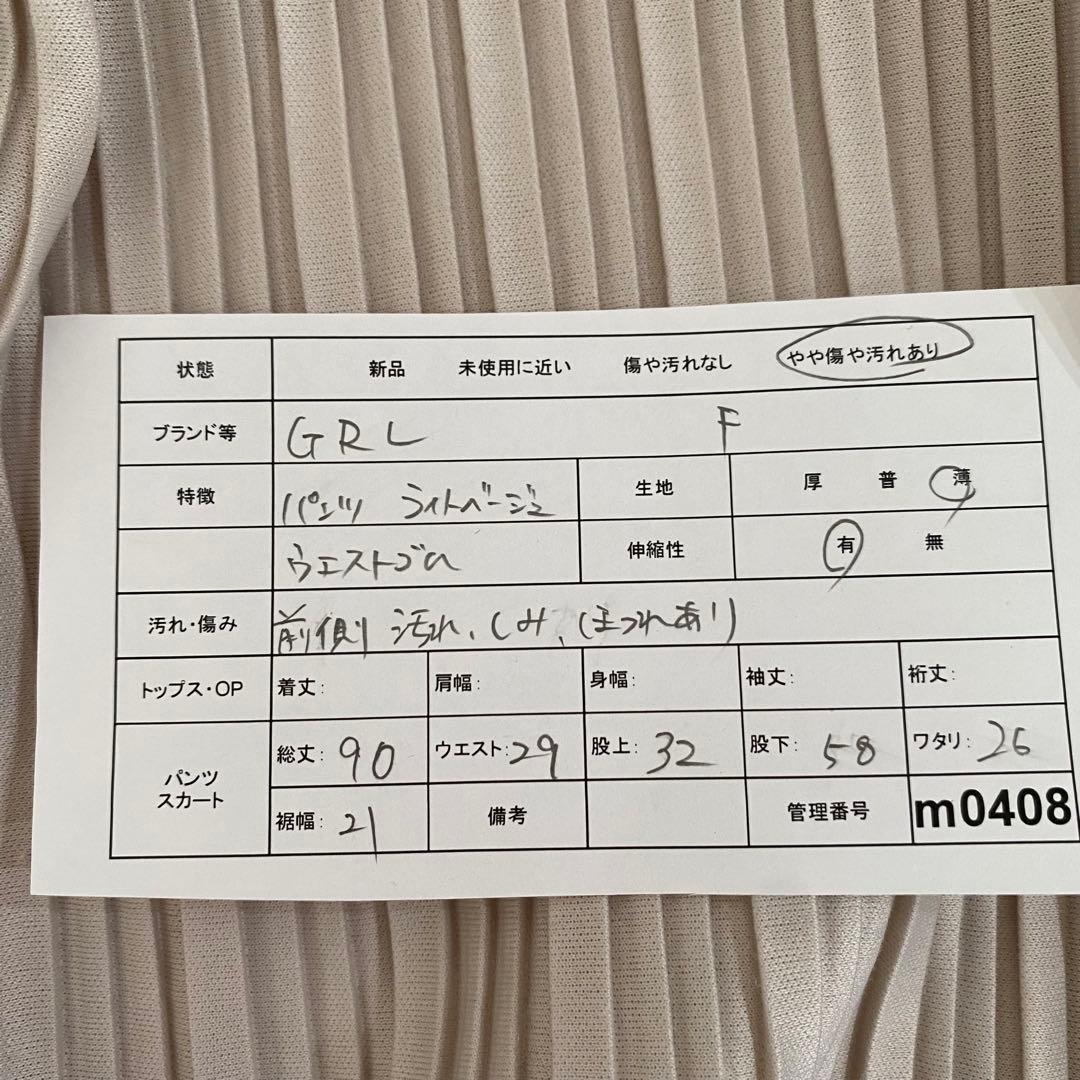 状態 新品 未使用に近い 傷や汚れなし やや傷や汚れあり
ブランド等 GRL F
特徴 パンツ ライトベージュ 生地 厚 普 薄
ウエストゴム 伸縮性 有 無
汚れ・傷み 前側 汚れ、しみ、ほつれあり
トップス・OP 着丈: 肩幅: 身幅: 袖丈: 裄丈:
パンツ スカート 総丈: 90 ウエスト: 29 股上: 32 股下: 58 ワタリ: 26
裾幅: 21 備考 管理番号 m0408